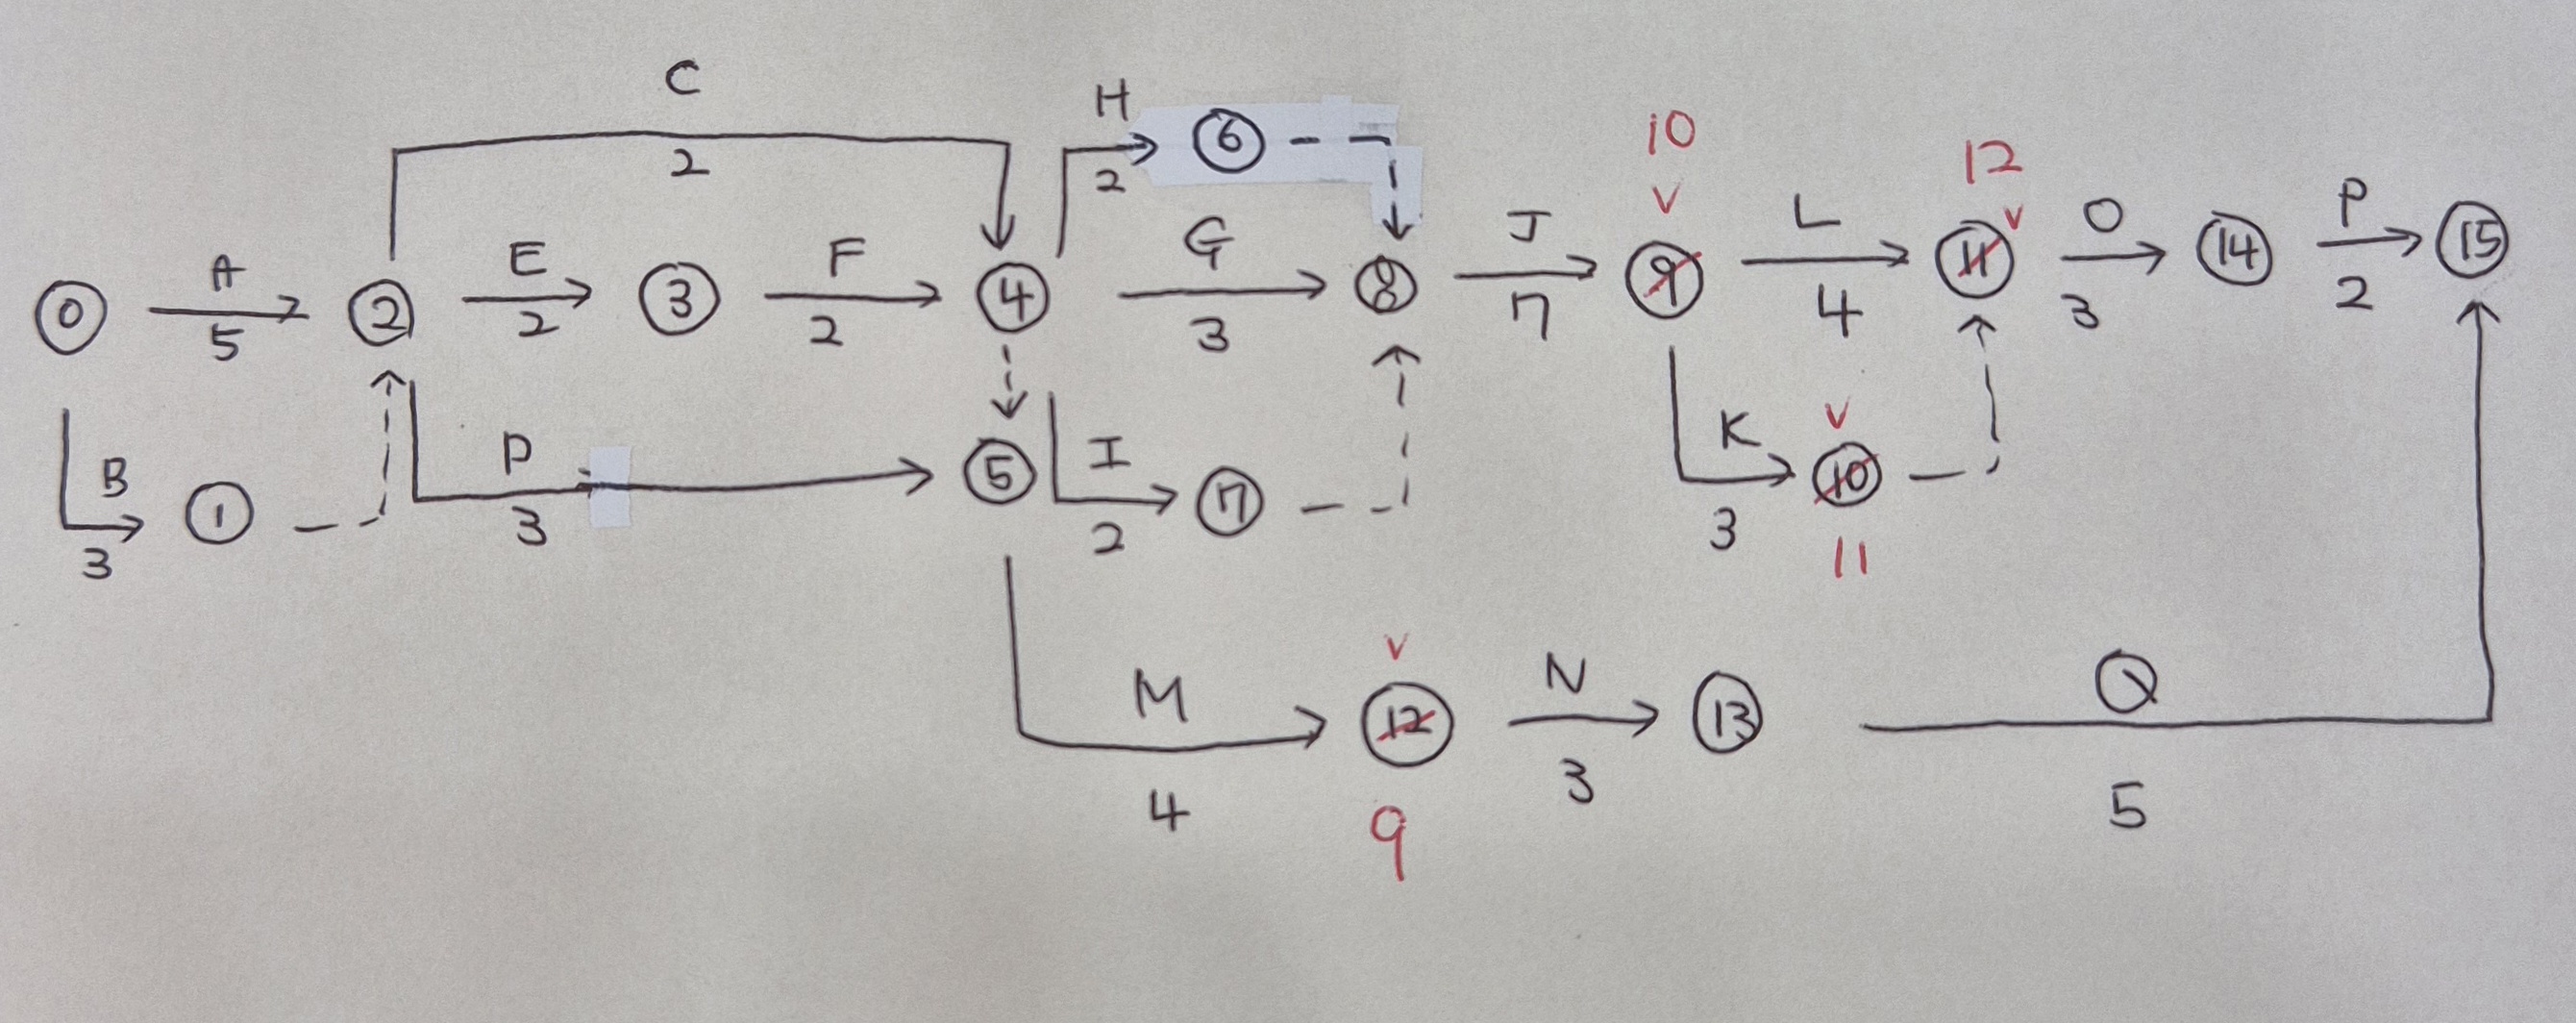 C
2
H
6
2
10
V
12
V
A
5
E
2
F
2
G
3
J
7
L
4
O
3
P
2
0
2
3
4
8
9
11
14
15
B
3
1
D
3
5
I
2
7
K
3
V
10
11
M
4
V
12
9
N
3
13
Q
5